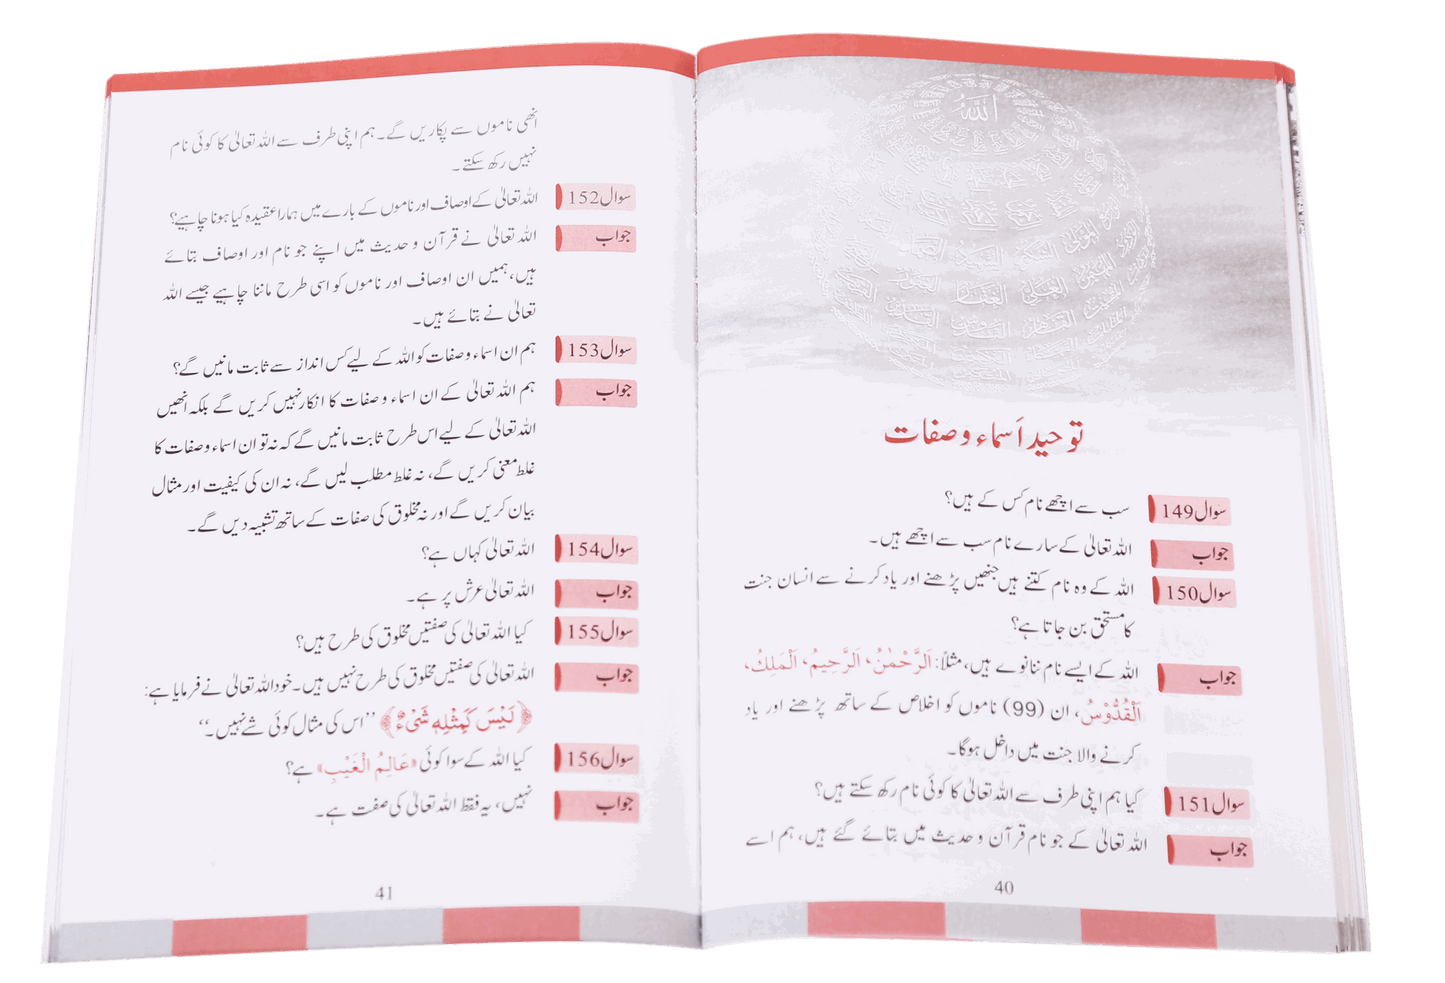 اللہ
توحید اَسماء و صفات
سوال149 سب سے اچھے نام کس کے ہیں؟
جواب اللہ تعالیٰ کے سارے نام سب سے اچھے ہیں۔
سوال150 اللہ کے وہ نام کتنے ہیں جنھیں پڑھنے اور یاد کرنے سے انسان جنت
کا مستحق بن جاتا ہے؟
جواب اللہ کے ایسے نام ننانوے ہیں، مثلاً: اَلرَّحْمٰنُ، اَلرَّحِيمُ، اَلْمَلِكُ،
اَلْقُدُّوْسُ، ان (99) ناموں کو اخلاص کے ساتھ پڑھنے اور یاد
کرنے والا جنت میں داخل ہوگا۔
سوال151 کیا ہم اپنی طرف سے اللہ تعالیٰ کا کوئی نام رکھ سکتے ہیں؟
جواب اللہ تعالیٰ کے جو نام قرآن و حدیث میں بتائے گئے ہیں، ہم اسے
40
انھی ناموں سے پکاریں گے۔ ہم اپنی طرف سے اللہ تعالیٰ کا کوئی نام
نہیں رکھ سکتے۔
سوال152 اللہ تعالیٰ کے اوصاف اور ناموں کے بارے میں ہمارا عقیدہ کیا ہونا چاہیے؟
جواب اللہ تعالیٰ نے قرآن و حدیث میں اپنے جو نام اور اوصاف بتائے
ہیں، ہمیں ان اوصاف اور ناموں کو اسی طرح ماننا چاہیے جیسے اللہ
تعالیٰ نے بتائے ہیں۔
سوال153 ہم ان اسماء و صفات کو اللہ کے لیے کس انداز سے ثابت مانیں گے؟
جواب ہم اللہ تعالیٰ کے ان اسماء و صفات کا انکار نہیں کریں گے بلکہ انھیں
اللہ تعالیٰ کے لیے اس طرح ثابت مانیں گے کہ نہ تو ان اسماء و صفات کا
غلط معنی کریں گے، نہ غلط مطلب لیں گے، نہ ان کی کیفیت اور مثال
بیان کریں گے اور نہ مخلوق کی صفات کے ساتھ تشبیہ دیں گے۔
سوال154 اللہ تعالیٰ کہاں ہے؟
جواب اللہ تعالیٰ عرش پر ہے۔
سوال155 کیا اللہ تعالیٰ کی صفتیں مخلوق کی طرح ہیں؟
جواب اللہ تعالیٰ کی صفتیں مخلوق کی طرح نہیں ہیں۔ خود اللہ تعالیٰ نے فرمایا ہے:
﴿لَيْسَ كَمِثْلِهٖ شَيْءٌ﴾ ’’اس کی مثال کوئی شے نہیں۔‘‘
سوال156 کیا اللہ کے سوا کوئی «عَالِمُ الْغَيْبِ» ہے؟
جواب نہیں، یہ فقط اللہ تعالیٰ کی صفت ہے۔
41